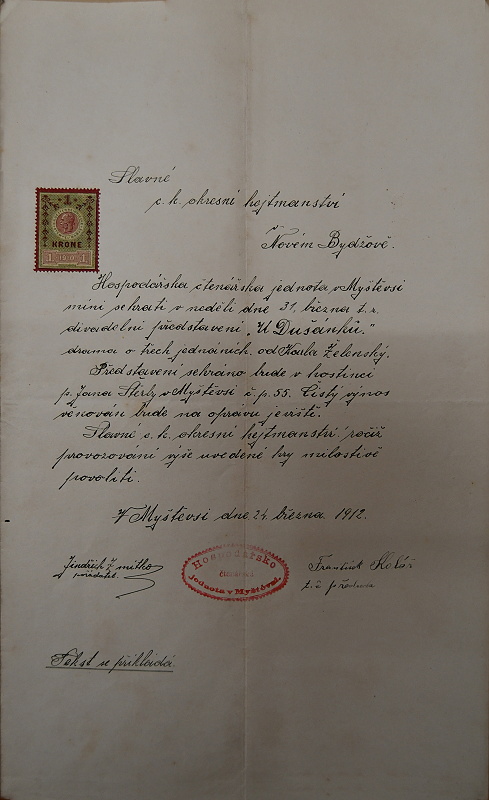 Slavné
c. k. okresní hejtmanství
v Novém Bydžově.
1
KRONE
1 1910 1
Hospodářská čtenářská jednota v Myštěvsi
míní sehrati v neděli dne 31. března t. r.
divadelní představení „U Dušánků."
drama o třech jednáních, od Karla Želenský.
Představení sehráno bude v hostinci
p. Jana Šterby v Myštěvsi č. p. 55. Čistý výnos
věnován bude na opravu jeviště.
Slavní c. k. okresní hejtmanství račiž
provozování výše uvedené hry milostivě
povoliti.
V Myštěvsi dne 24. března 1912.
Jindřich
pořadatel.
Hospodářsko
čtenářská
Jednota v Myštěvsi.
František Kolář
t. č. předseda
Tekst se přikládá.